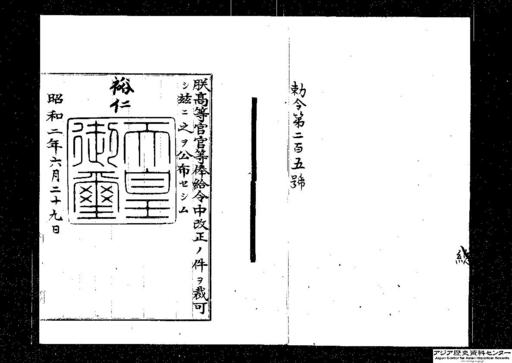 勅令第二百五號
朕高等官官等俸給令中改正ノ件ヲ裁可
シ茲ニ之ヲ公布セシム
裕仁
天皇
御璽
昭和二年六月二十九日
アジア歴史資料センター
Japan Center for Asian Historical Records